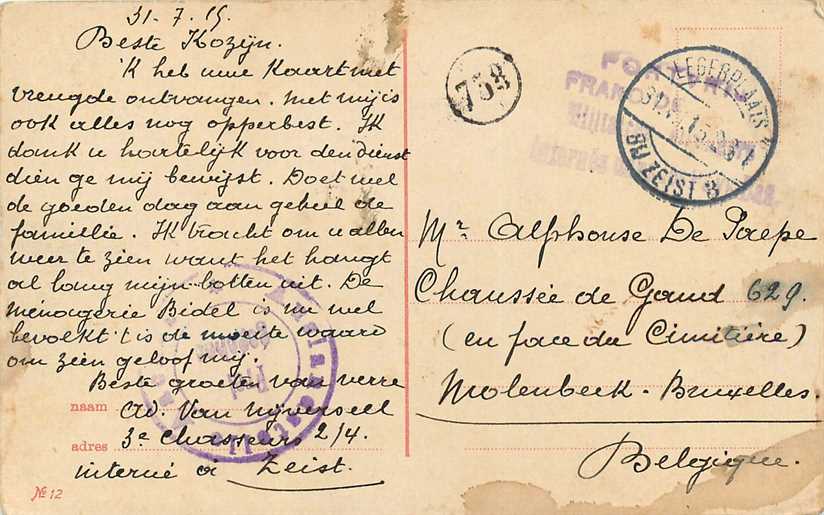 31-7-15
Beste Kozijn.
'k heb uwe Kaart met
vreugde ontvangen. Met mij is
ook alles nog opperbest. Ik
dank u hartelijk voor den dienst
dien ge mij bewijst. Doet met
de goeden dag aan geheel de
famillie. Ik tracht om u allen
weer te zien want het hangt
al lang mijn botten uit. De
Ménagerie Bidel is nu wel
bevolkt 't is de moeite waard
om zien geloof mij.
Beste groeten van verre
naam Ad. Van Nijverseel
adres 3e Chasseurs 2/4.
interné à Zeist.
No 12
758
LEGERPLAATS
BIJ ZEIST
FRANC DE
Mr. Alphonse De Paepe
Chaussée de Gand 629.
(en face du Cimitière)
Molenbeek-Bruxelles.
Belgique.